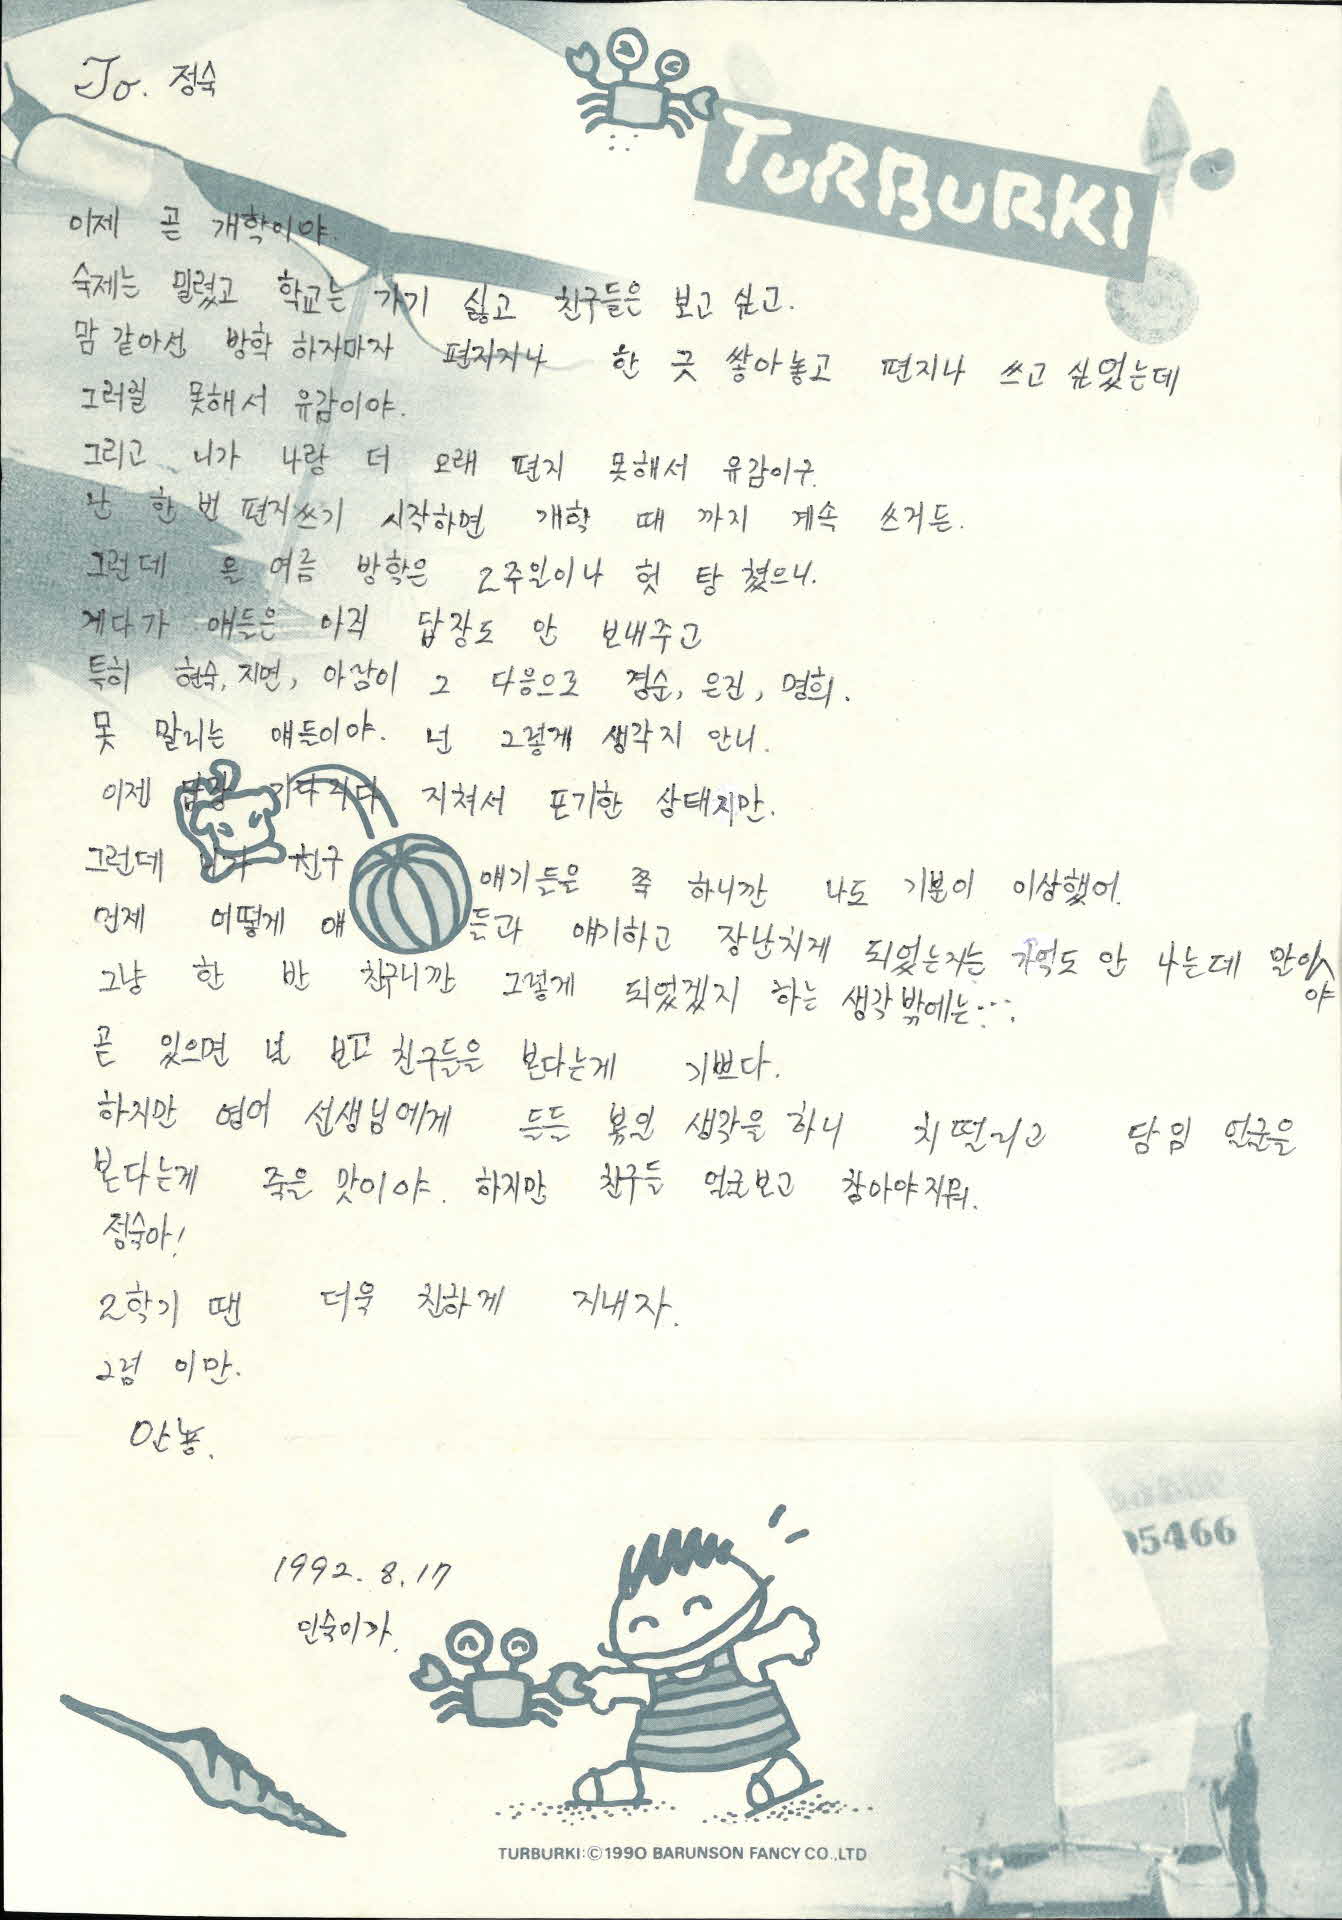 To. 정숙
TURBURKI
이제 곧 개학이야.
숙제는 밀렸고 학교는 가기 싫고 친구들은 보고 싶고.
맘 같아선 방학 하자마자 편지지나 한 곳 쌓아놓고 편지나 쓰고 싶었는데
그러질 못해서 유감이야.
그리고 니가 나랑 더 오래 편지 못해서 유감이구.
난 한 번 편지쓰기 시작하면 개학 때 까지 계속 쓰거든.
그런데 올 여름 방학은 2주일이나 헛 탕 쳤으니.
게다가 애들은 아직 답장도 안 보내주고
특히 현숙, 지연, 아람이 그 다음으로 경순, 은진, 명희.
못 말리는 얘들이야. 넌 그렇게 생각지 안니.
이젠 답장 기다리다 지쳐서 포기한 상태지만.
그런데 니가 친구 얘기들은 쭉 하니깐 나도 기분이 이상했어.
언제 어떻게 얘들과 얘기하고 장난치게 되었는지는 기억도 안 나는데 말이야
그냥 한 반 친구니깐 그렇게 되었겠지 하는 생각밖에는···.
곧 있으면 널 보고 친구들을 본다는게 기쁘다.
하지만 영어 선생님에게 들들 볶일 생각을 하니 치떨리고 담임 얼굴을
본다는게 죽을 맛이야. 하지만 친구들 얼굴보고 참아야지뭐.
정숙아!
2학기 땐 더욱 친하게 지내자.
그럼 이만.
안뇽.
1992. 8. 17
인숙이가.
05466
TURBURKI:©1990 BARUNSON FANCY CO.,LTD